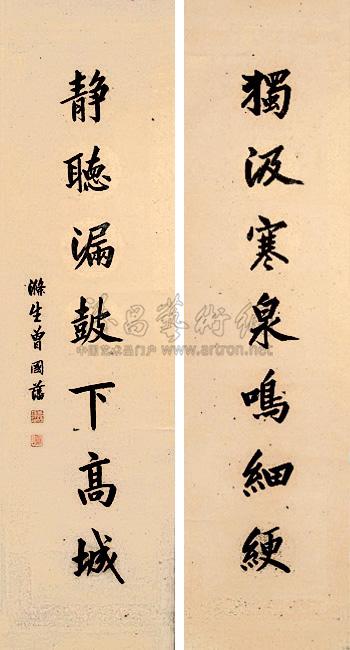 獨汲寒泉鳴細綆
静聽漏鼓下高城
滌生曾國藩
雅昌藝術網
中国艺术品门户 www.artron.net